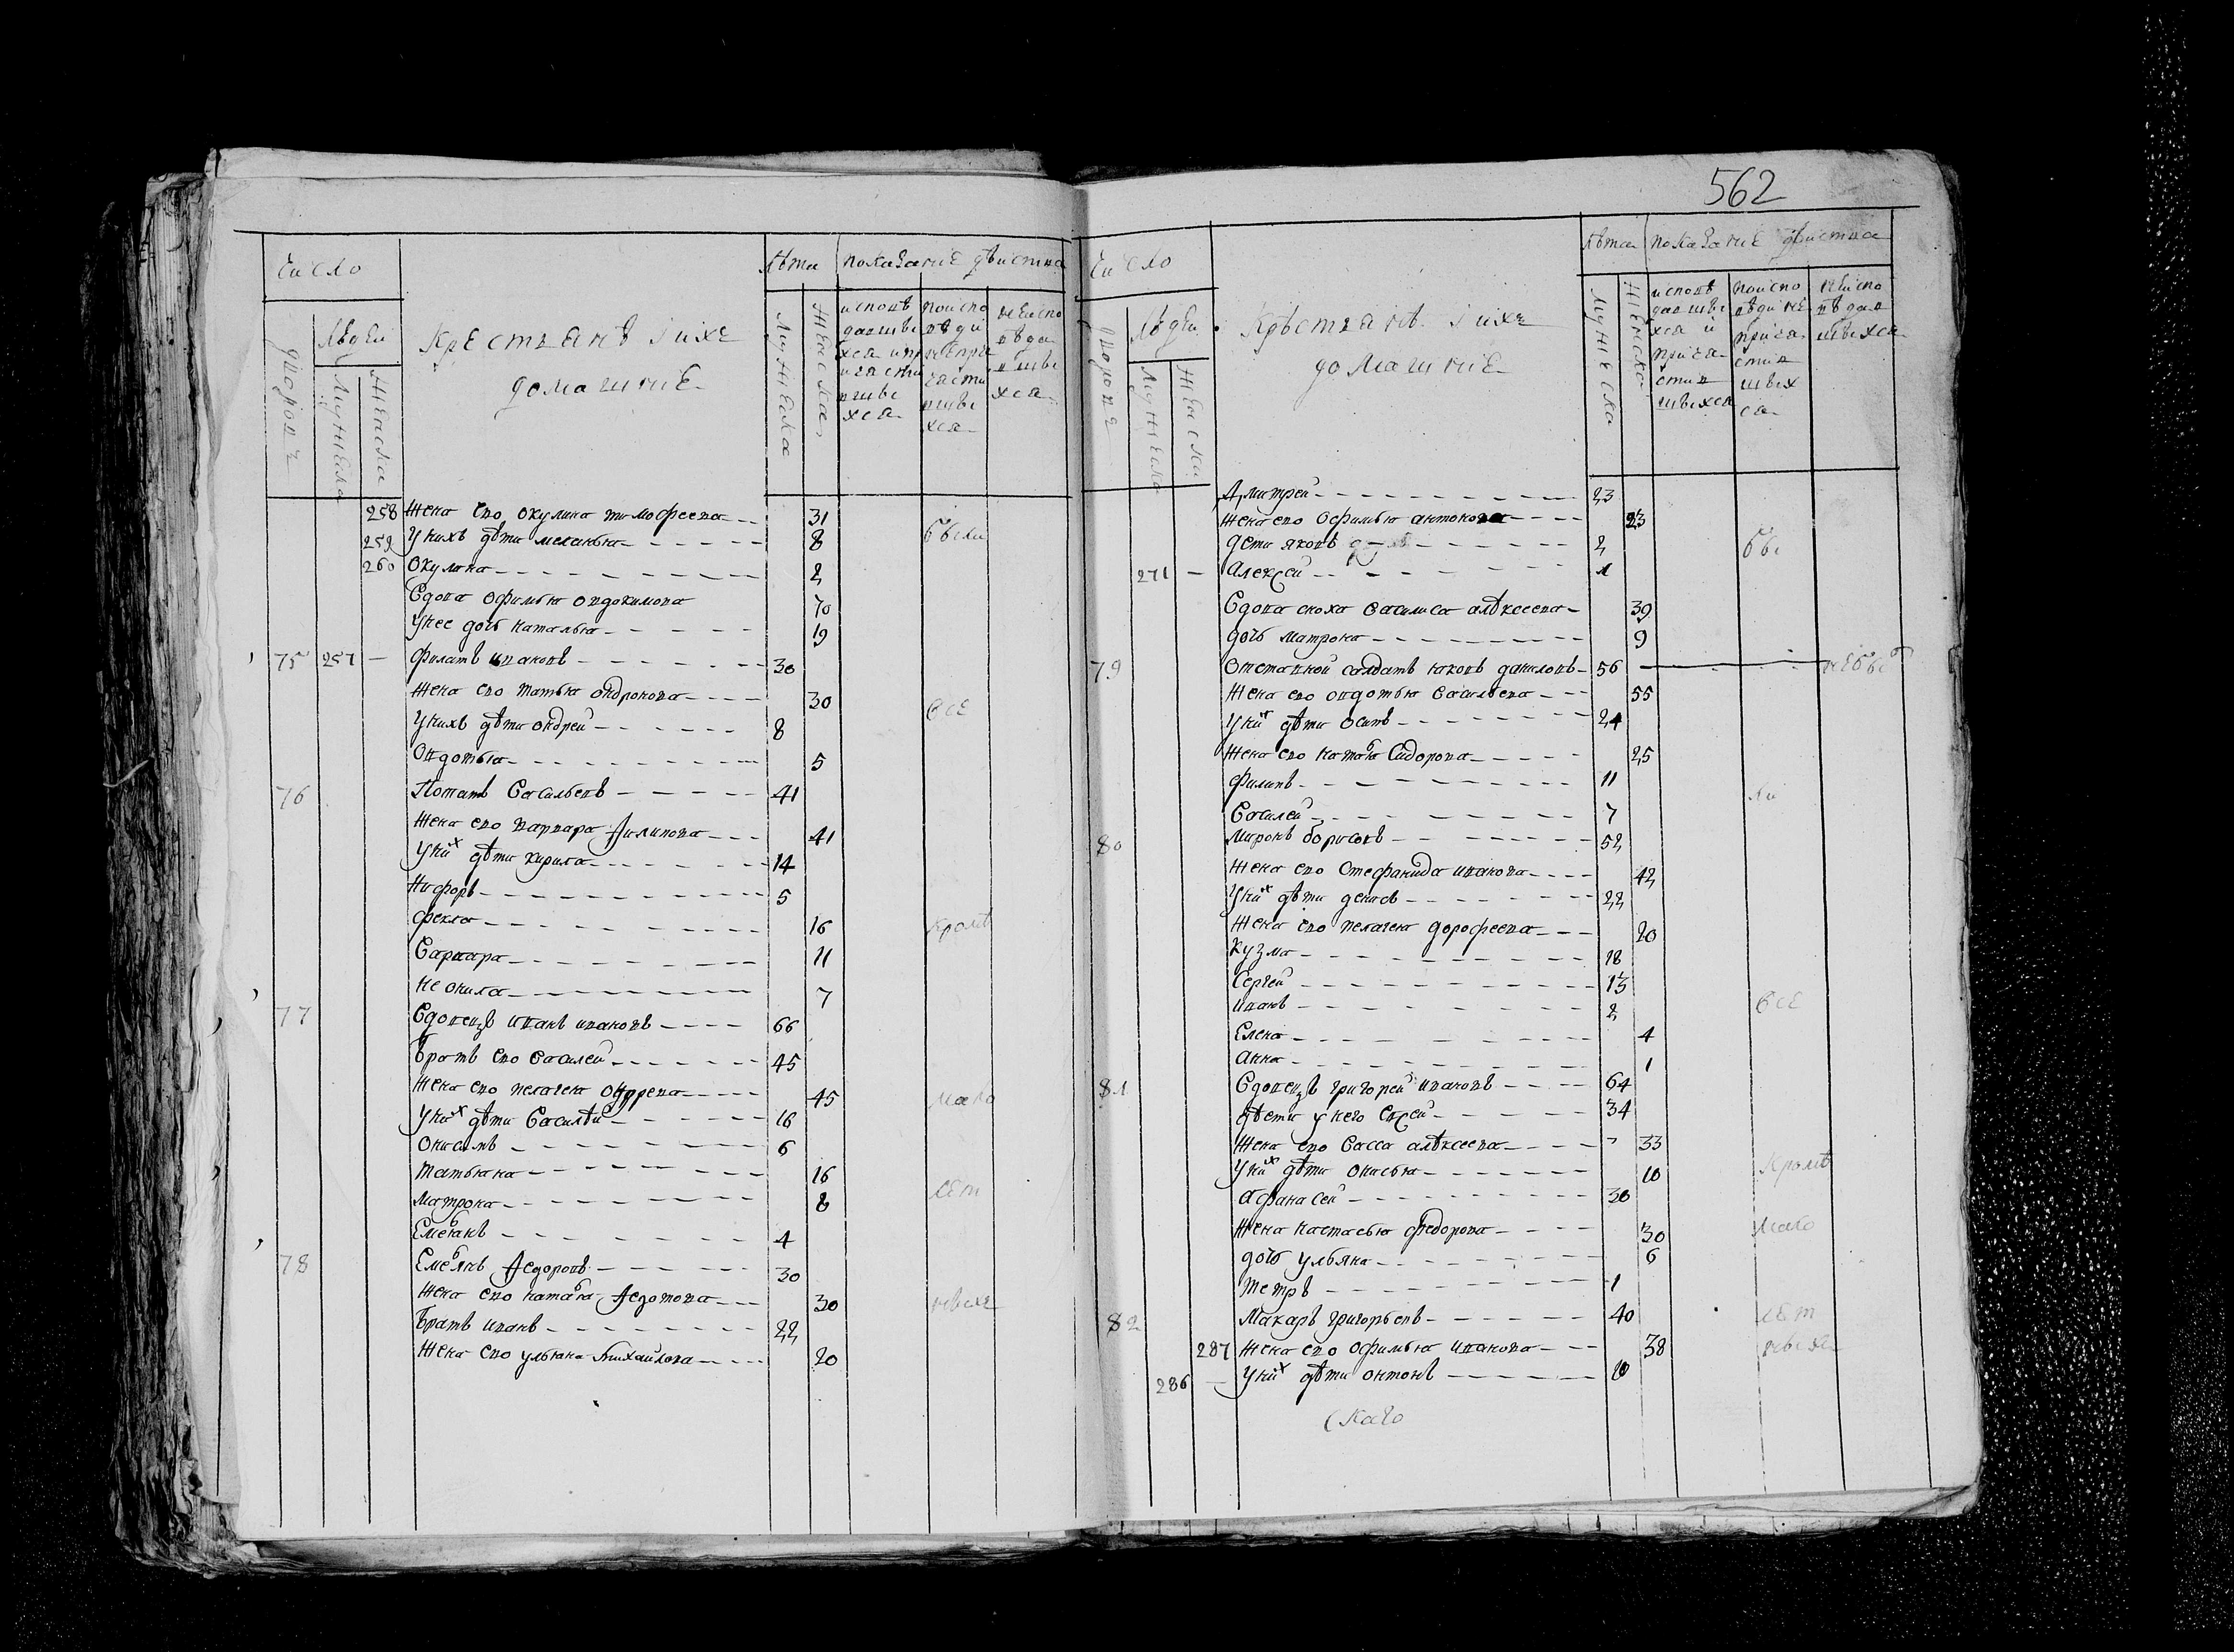 562
Число
Крестьянъ и ихъ
домашние
лѣта
показание дѣиства
дворовъ
людеи
мужеска
женска
мужеска
женска
исповѣ
давши
хся и пр
ичасти
вшы
хся
по испо
вѣди
непри
части
вшы
хся
неиспо
вѣда
вшы
хся
258 жена ево окулина тимофеева 31
259 у нихъ дѣти меланья 8 бы ли
260 окулина 2
вдова офимья овдокимова 70
у нее дочь наталья 19
75 257 филатъ ивановъ 30
жена ево татьяна ондронова 30 все
у нихъ дѣти ондреи 8
овдотья 5
76 Потапъ васильевъ 41
жена ево варвара филипова 41
у них дѣти кирила 14
никифоръ 5
фекла 16 кромѣ
варвара 11
неонила 7
77 вдовецъ иванъ ивановъ 66
братъ ево василеи 45
жена ево пелагея ондреева 45 мало
у них дѣти василеи 16
онисимъ 6
татьяна 16
матрона 8 лет
емельянъ 4
78 Емельянъ федоровъ 30
жена ево наталья федотова 30 ныхъ
братъ иванъ 22
жена ево ульяна михаилова 20
Число
Крѣстьянъ и ихъ
домашние
лѣта
показание дѣиства
дворовъ
людеи
мужеска
женска
мужеска
женска
исповѣ
давшы
хся и
прича
стив
шыхся
по испо
вѣди не
прича
стив
шых
ся
не испо
вѣдав
шыхся
Дмитреи 23
жена ево офимья антонова 23
дети яковъ 2 бы
271 алексеи 1
вдова сноха василиса алѣксеева 39
дочь матрона 9
79 Отставнои салдатъ яковъ даниловъ 56 не бы
жена ево овдотья васильева 55
у них дѣти осипъ 24
жена ево наталья сидорова 25
филипъ 11 ли
василеи 7
80 миронъ борисовъ 52
жена ево стефанида иванова 42
у них дѣти денисъ 22
жена ево пелагея дорофеева 20
кузма 18
сергеи 13
иванъ 2 все
елена 4
анна 1
81 вдовецъ григореи ивановъ 64
дѣти у него евсеи 34
жена ево васса алѣксеева 33
у них дѣти онисья 10 кромѣ
афанасеи 30
жена настасья федорова 30 мало
дочь ульяна 6
петръ 1
82 макаръ григорьевъ 40 лет
287 жена ево офимья иванова 38 ныхъ
286 у них дѣти онтонъ 10